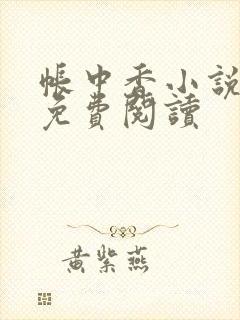 帳中香小說
免費閱讀
黃紫燕